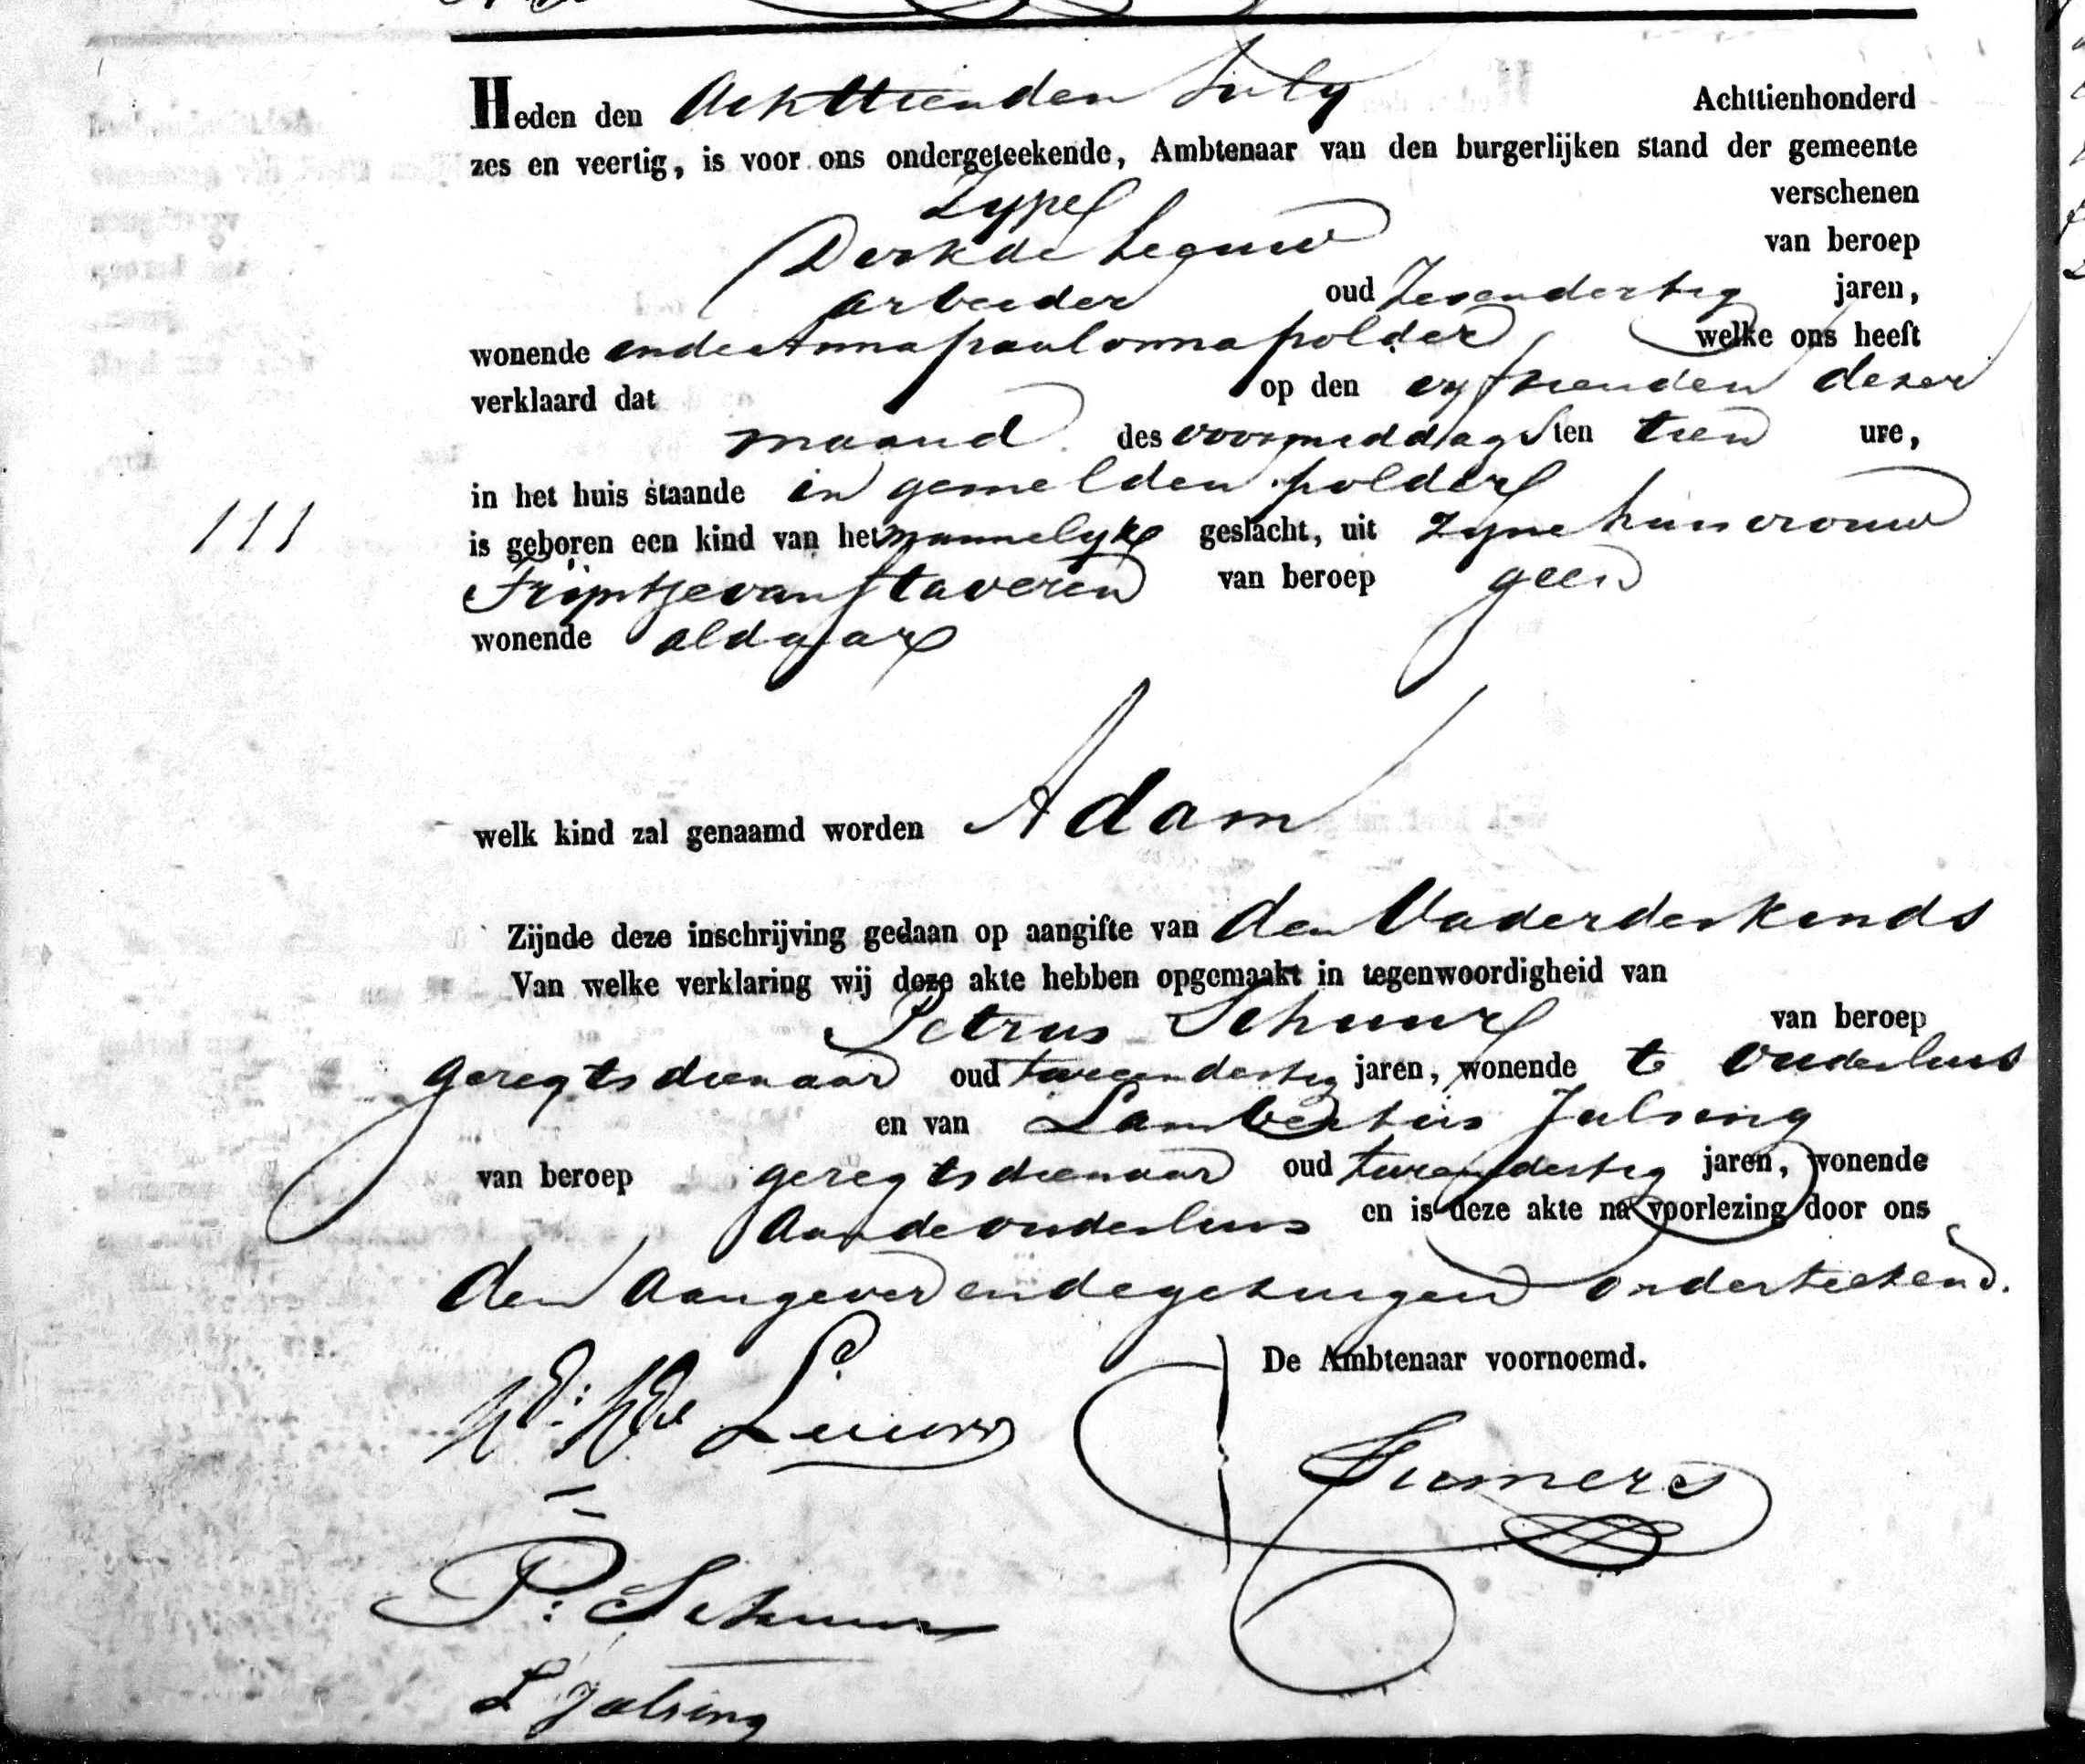 Heden den Achttienden July Achttienhonderd
zes en veertig, is voor ons ondergeteekende, Ambtenaar van den burgerlijken stand der gemeente
Zype verschenen
Dirk de Leeuw van beroep
arbeider oud Zesendertig jaren,
wonende in de Anna paulowna polder welke ons heeft
verklaard dat op den vyftienden dezer
maand des voormiddags ten tien ure,
in het huis staande in gemelden polder
is geboren een kind van het mannelyke geslacht, uit zyne huisvrouw
Trijntje van Staveren van beroep geen
111
wonende aldaar
welk kind zal genaamd worden Adam
Zijnde deze inschrijving gedaan op aangifte van den Vader des kinds
Van welke verklaring wij deze akte hebben opgemaakt in tegenwoordigheid van
Petrus Schuur van beroep
geregtsdienaar oud tweeendertig jaren, wonende te Oudesluis
en van Lambertus Jalsing
van beroep geregtsdienaar oud tweeendertig jaren, wonende
Aan de oudesluis en is deze akte na voorlezing door ons
den Aangever en de getuigen onderteekend.
De Ambtenaar voornoemd.
Leeuw
P: Schuur
L Jalsing